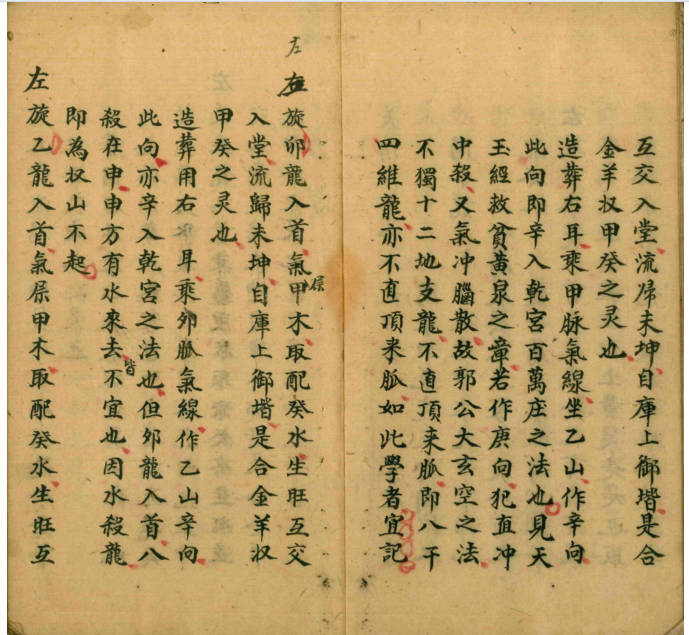 互交入堂流歸未坤自庫上御堦是合
金羊收甲癸之灵也
造葬右耳乘甲脉氣線坐乙山作辛向
此向即辛入乾宮百萬庄之法也見天
玉經救貧黃泉之章若作庚向犯直冲
中殺又氣冲腦散故郭公大玄空之法
不獨十二地支龍不直頂来脈即八干
四維龍亦不直頂来脈如此學者宜記
左
右旋卯龍入首氣屬甲木取配癸水生旺互交
入堂流歸未坤自庫上御堦是合金羊收
甲癸之灵也
造葬用右水耳乘卯脈氣線作乙山辛向
此向亦辛入乾宮之法也但卯龍入首八
殺在申申方有水來去皆不宜也因水殺龍
即為収山不起
左旋乙龍入首氣屬甲木取配癸水生旺互